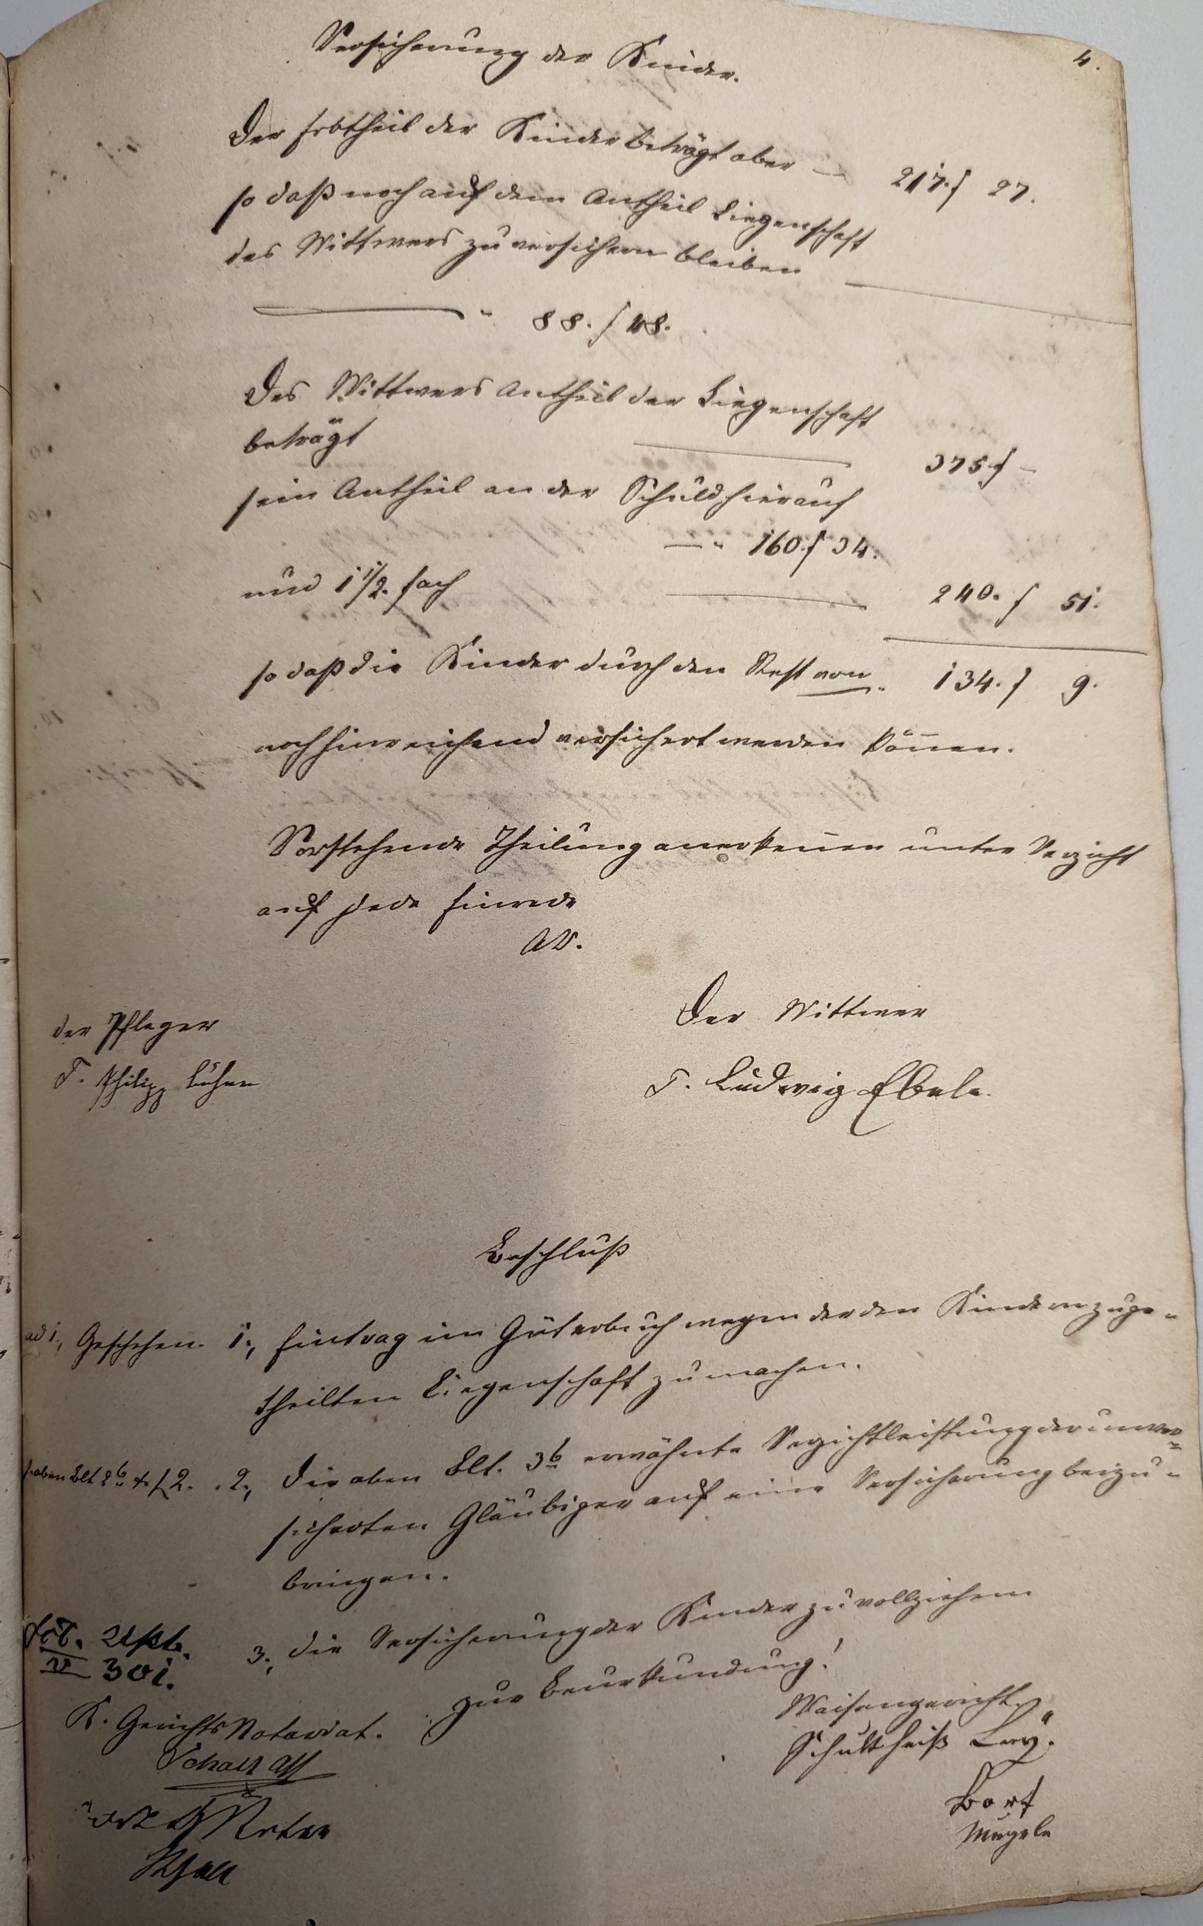 4.
Versicherung der Kinder.
Der Erbtheil der Kinder beträgt aber — 217. f 27.
so daß noch auf dem Antheil Liegenschaft
des Wittwers zu versichern bleiben
— " 88. f 48.
Des Wittwers Antheil der Liegenschaft
beträgt — 375 f –
sein Antheil an der Schuld hierauf
— " 160. f 34.
und 1 1/2. fach — 240. f 51.
so daß die Kinder durch den Rest von 134. f 9.
noch hinreichend versichert werden können.
Vorstehende Theilung anerkennen unter Verzicht
auf jede Einrede
der Pfleger
Der Wittwer
T. Philipp Lühen
T. Ludwig Ebele.
Beschluß
ad 1, Geschehen. 1., Eintrag im Güterbuch wegen der den Kindern zuge-
theilten Liegenschaft zu machen.
s. oben Blt 2. 2., Die oben Blt. 3b erwähnte Verzichtleistung der unver-
sicherten Gläubiger auf eine Versicherung beizu-
bringen.
3., die Versicherung der Kinder zu vollziehen
301.
zur Beurkundung!
K. Gerichts Notariat.
Waisengericht.
Schultheiß Lay.
Bort
Mugele